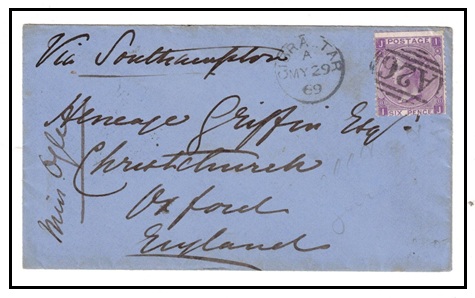 Via Southampton
GIBRALTAR
A
MY 29
69
POSTAGE
A26
SIX PENCE
Heneage Griffin Esq
Christchurch
Oxford
England
Miss